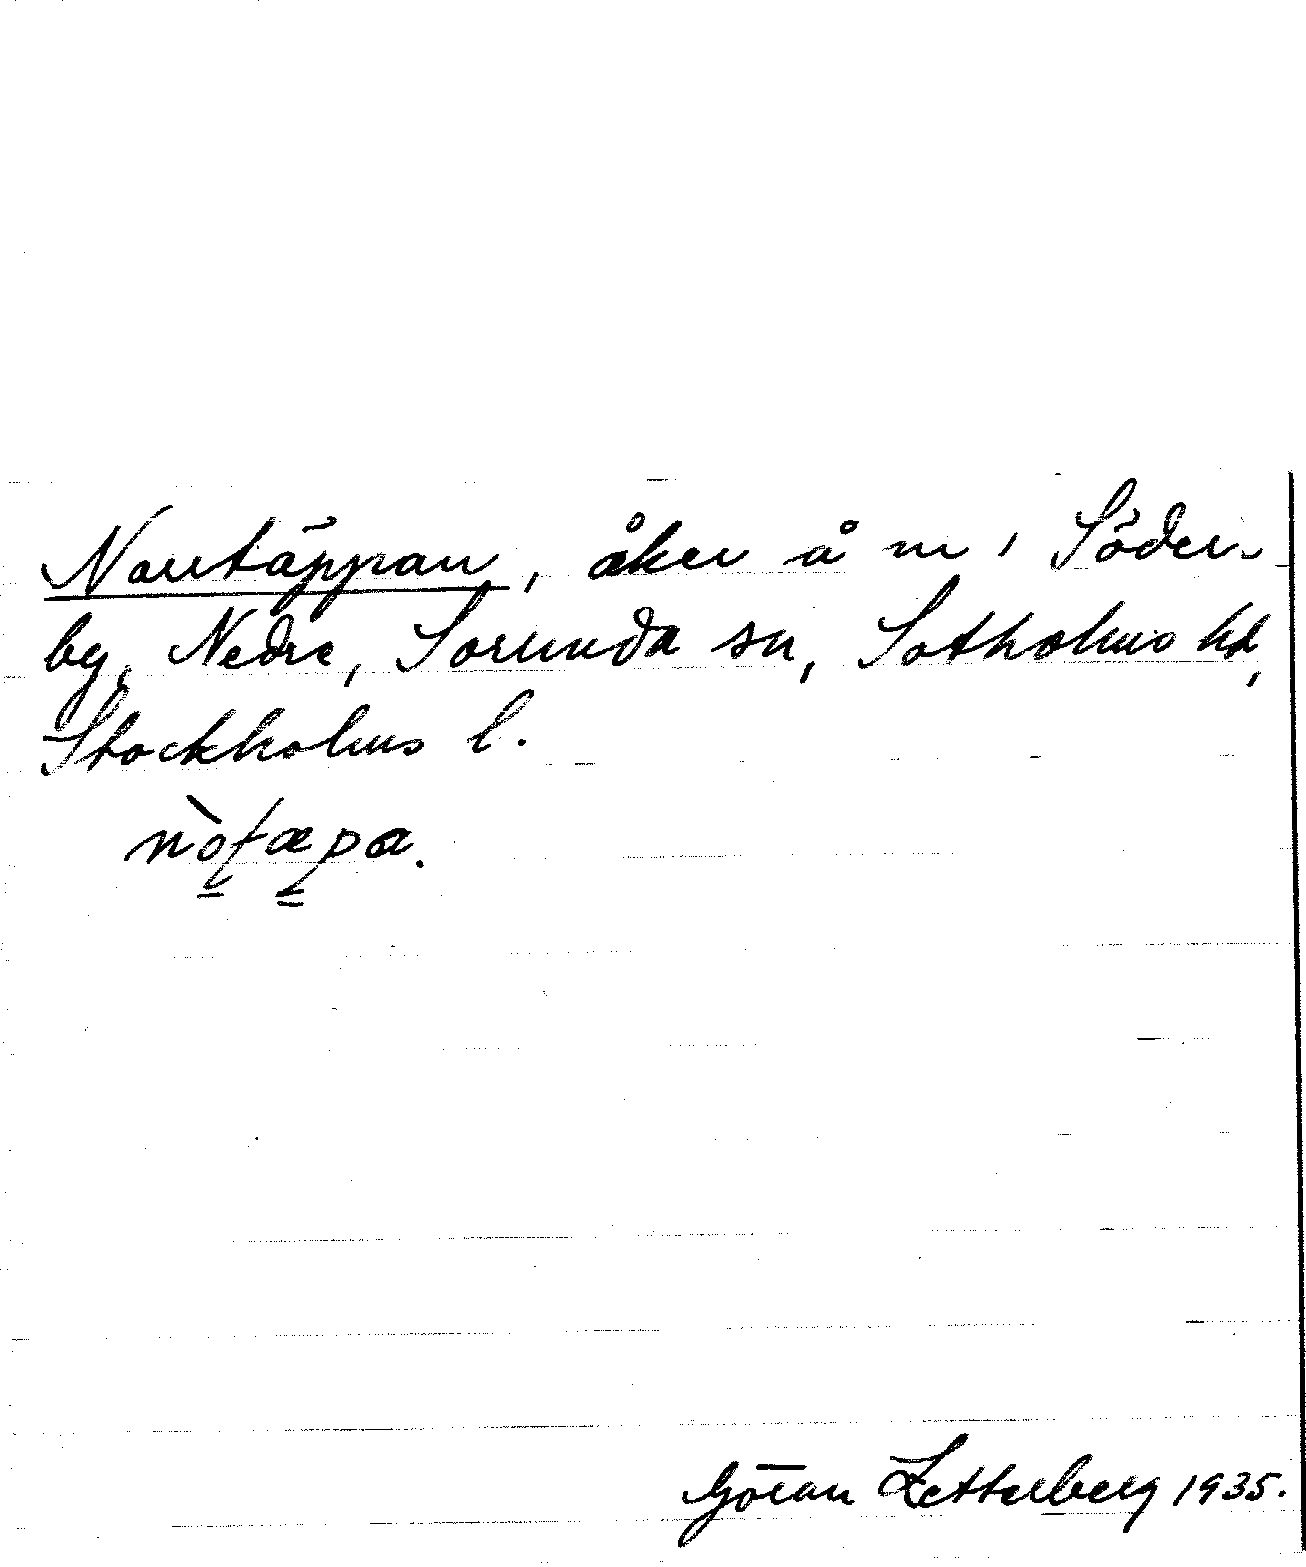 Norrtäppan, åker å nr 1 Söder-
by, Nedre, Sorunda sn, Sotholms hd,
Stockholms l.
nòtæpa.
Göran Zetterberg 1935.